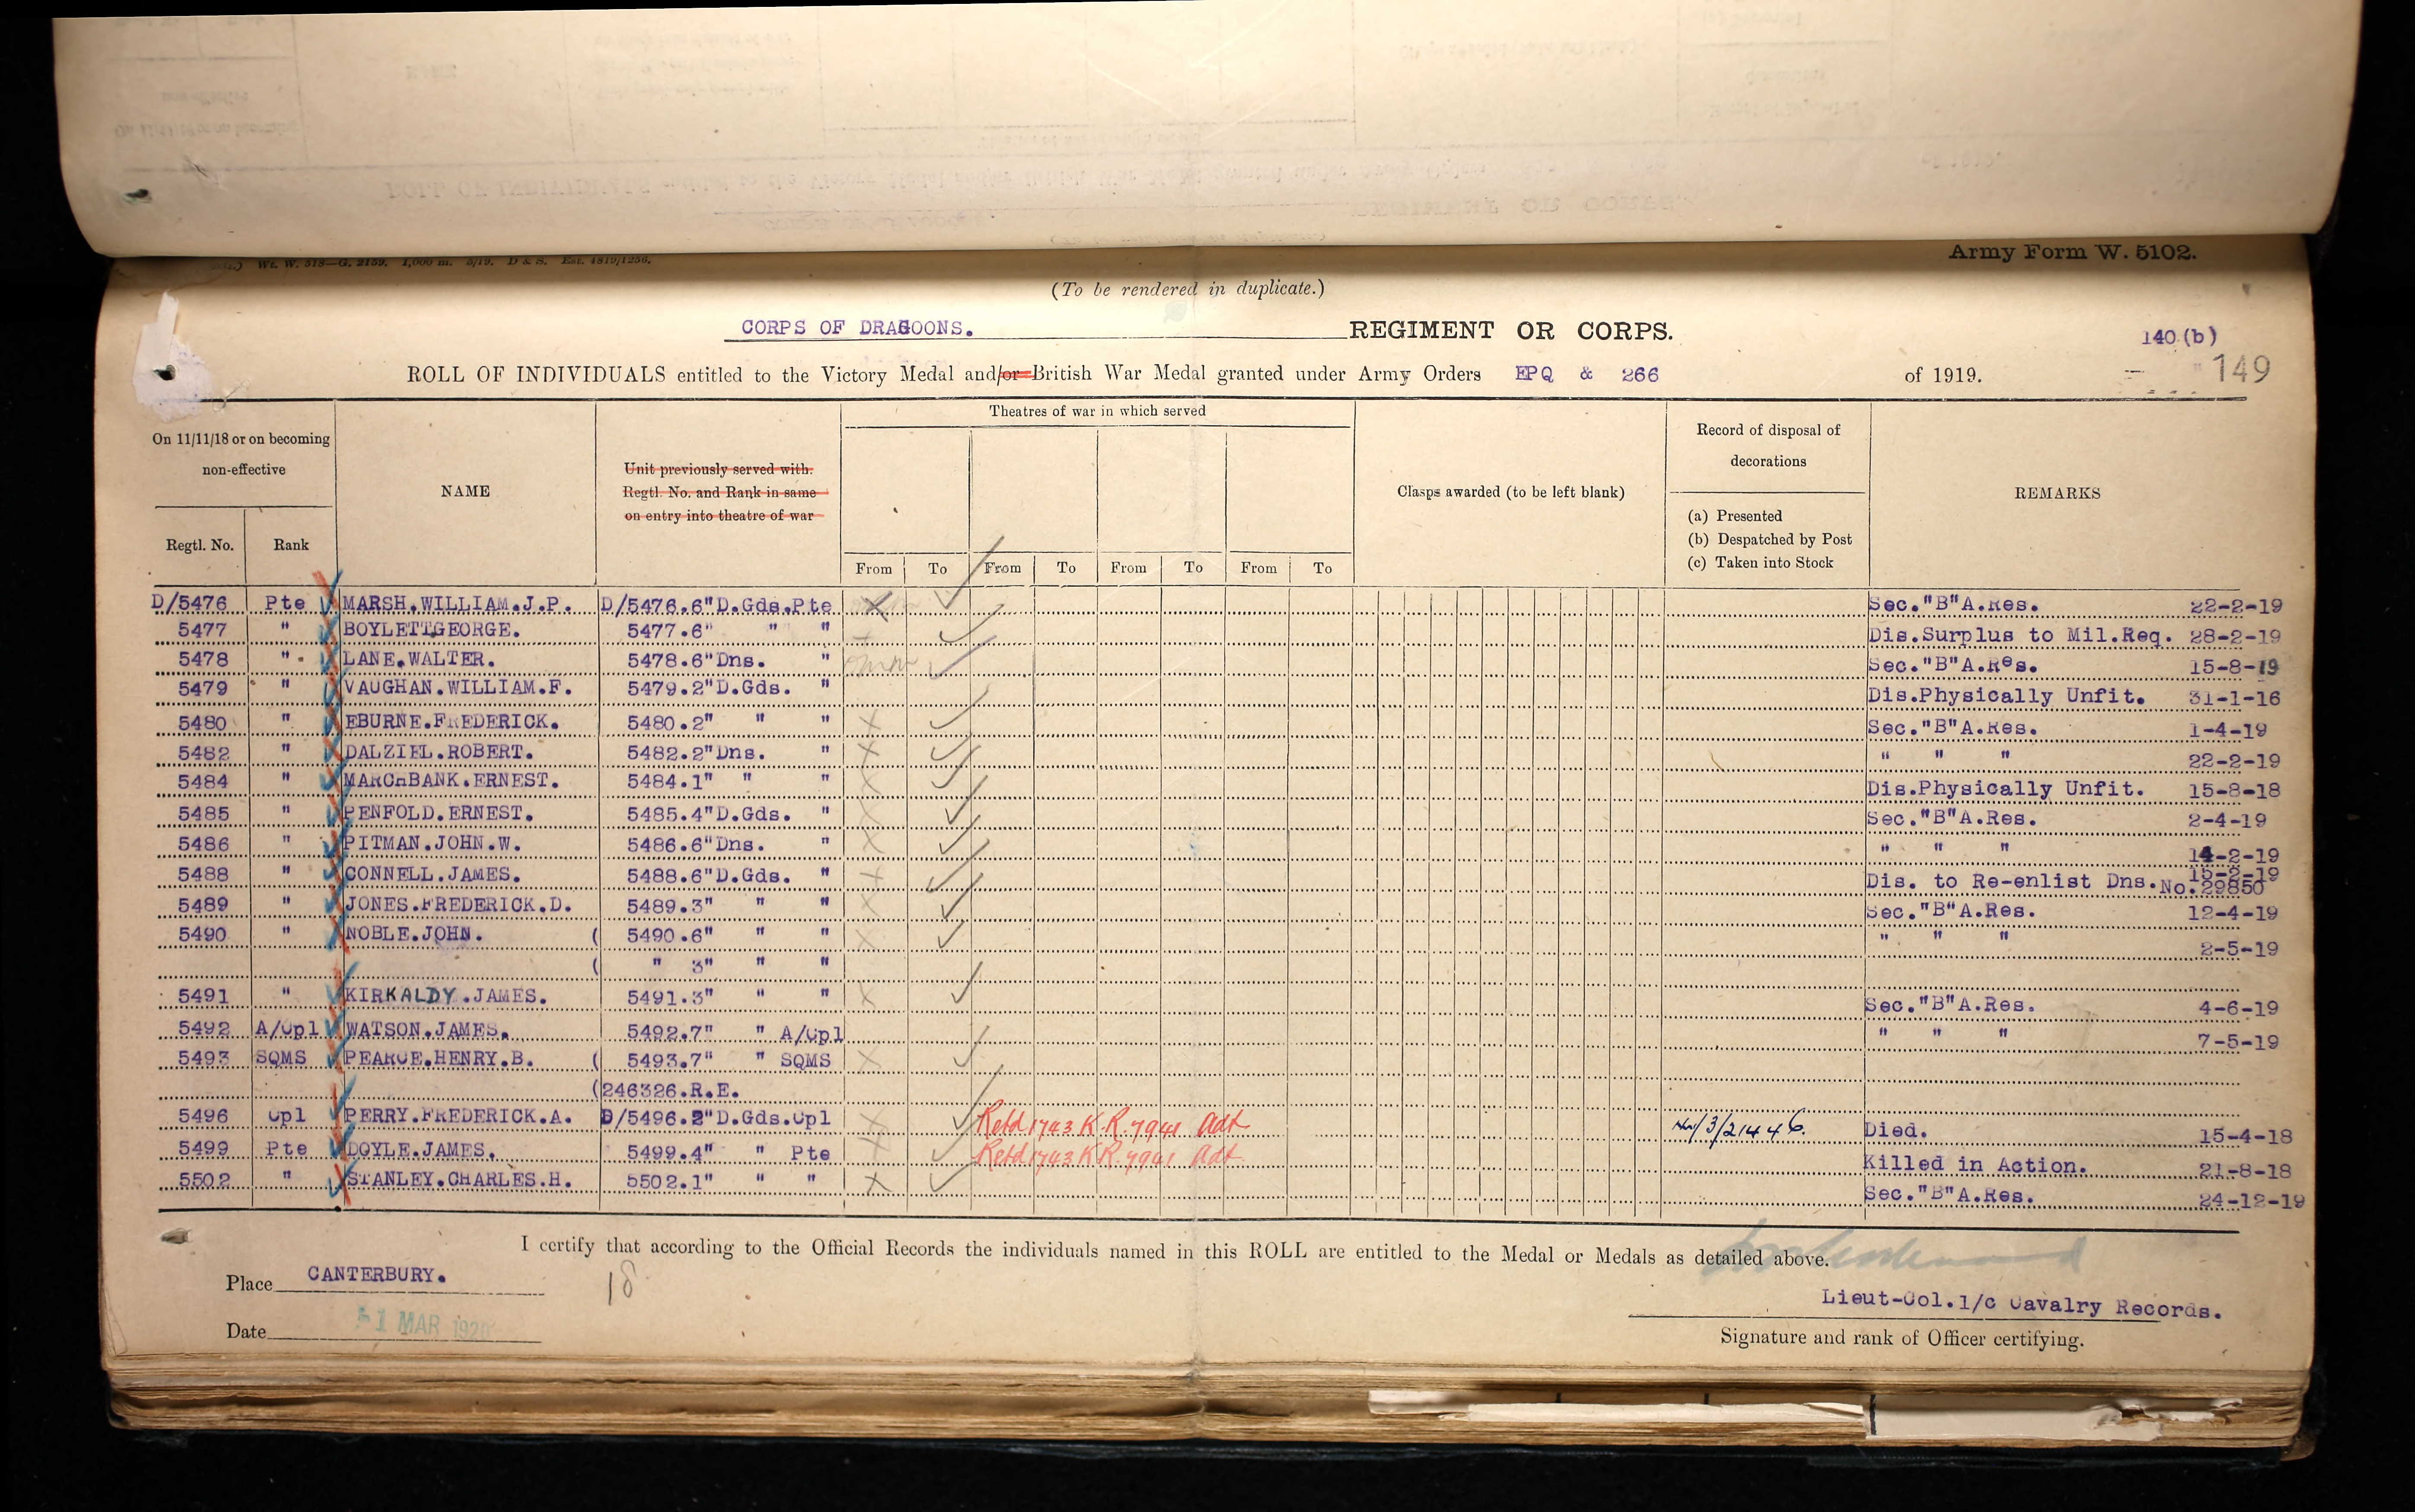 Wt. W. 518—G. 2159. 1,000 m. 3/19. D & S. Est. 4819/1256.
Army Form W. 5102.
(To be rendered in duplicate.)
CORPS OF DRAGOONS. REGIMENT OR CORPS.
140 (b)
149
ROLL OF INDIVIDUALS entitled to the Victory Medal and/or British War Medal granted under Army Orders EPQ & 266 of 1919.
On 11/11/18 or on becoming non-effective
Regtl. No. Rank
NAME
Unit previously served with.
Regtl. No. and Rank in same
on entry into theatre of war
Theatres of war in which served
From To From To From To From To
Clasps awarded (to be left blank)
Record of disposal of decorations
(a) Presented
(b) Despatched by Post
(c) Taken into Stock
REMARKS
D/5476 Pte MARSH.WILLIAM.J.P. D/5476.6"D.Gds.Pte Sec."B"A.Res. 22-2-19
5477 " BOYLETTGEORGE. 5477.6" " " Dis.Surplus to Mil.Req. 28-2-19
5478 " LANE.WALTER. 5478.6"Dns. " Sec."B"A.Res. 15-8-19
5479 " VAUGHAN.WILLIAM.F. 5479.2"D.Gds. " Dis.Physically Unfit. 31-1-16
5480 " EBURNE.FREDERICK. 5480.2" " " Sec."B"A.Res. 1-4-19
5482 " DALZIEL.ROBERT. 5482.2"Dns. " " " " 22-2-19
5484 " MARCHBANK.ERNEST. 5484.1" " " Dis.Physically Unfit. 15-8-18
5485 " PENFOLD.ERNEST. 5485.4"D.Gds. " Sec."B"A.Res. 2-4-19
5486 " PITMAN.JOHN.W. 5486.6"Dns. " " " " 14-2-19
5488 " CONNELL.JAMES. 5488.6"D.Gds. " Dis. to Re-enlist Dns.No.29850 15-2-19
5489 " JONES.FREDERICK.D. 5489.3" " " Sec."B"A.Res. 12-4-19
5490 " NOBLE.JOHN. ( 5490.6" " " " " " 2-5-19
( " 3" " "
5491 " KIRKALDY.JAMES. 5491.3" " " Sec."B"A.Res. 4-6-19
5492 A/Cpl WATSON.JAMES. 5492.7" " A/Cpl " " " 7-5-19
5493 SQMS PEARCE.HENRY.B. ( 5493.7" " SQMS
(246326.R.E.
5496 Cpl PERRY.FREDERICK.A. D/5496.2"D.Gds.Cpl Retd 1743 K.R. 7941 Adt Died. 15-4-18
5499 Pte DOYLE.JAMES. 5499.4" " Pte Retd 1743 KR 7941 Adt Killed in Action. 21-8-18
5502 " STANLEY.CHARLES.H. 5502.1" " " Sec."B"A.Res. 24-12-19
I certify that according to the Official Records the individuals named in this ROLL are entitled to the Medal or Medals as detailed above.
Place CANTERBURY.
18
Lieut-Col.i/c Cavalry Records.
Date 31 MAR 1920
Signature and rank of Officer certifying.